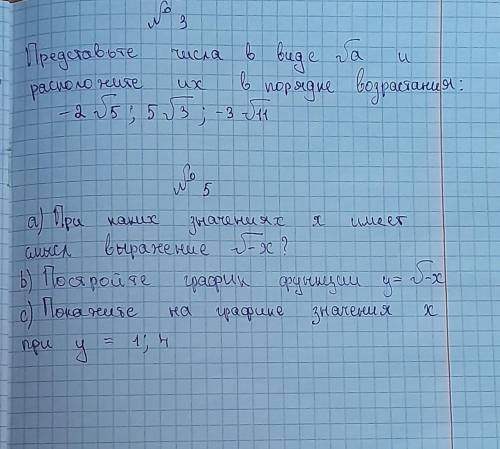 № 3
Представьте числа в виде √a и
расположите их в порядке возрастания:
-2√5; 5√3; -3√11
№ 5
a) При каких значениях x имеет
смысл выражение √-x?
b) Постройте график функции y=√-x
c) Покажите на графике значения x
при y = 1; 4